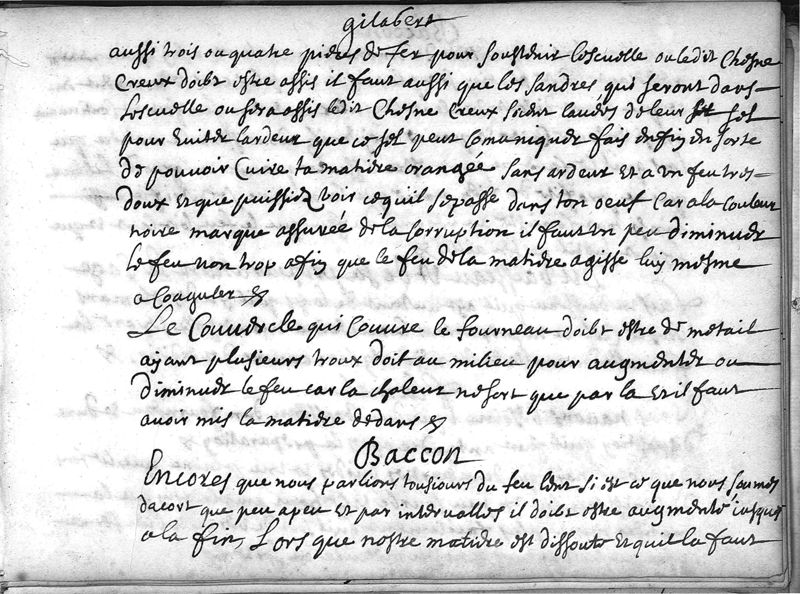 gilabert
aussi trois ou quatre pieces de fer pour soustenir lescuelle ou ledit Chesne
Creux doibt estre assis il faut aussi que les sandres qui seront dans
Lescuelle ou sera assis ledit Chesne Creux soient lauées de leur sel
pour Euiter lardeur que ce sel peut Comuniquer fais enfin en sorte
de pouvoir Cuire ta matiere orangée sans ardeur Et a vn feu tres
doux Et que puissiez vois ce quil se passe dans ton oeuf Car a la Couleur
noire marque assurée de la Corruption il faut vn peu diminuer
le feu non trop afin que le feu de la matiere agisse luy mesme
a Coaguler
Le Couuercle qui Couure le fourneau doibt estre de metail
ayant plusieurs troux doit au milieu pour augmenter ou
diminuer le feu car la chaleur ne sort que par la Et il faut
auoir mis la matiere dedans
Baccon
Encores que nous parlions tousiours du feu lent si est ce que nous sommes
dacort que peu a peu Et par interualles il doibt estre augmenté iusques
a la fin, Lors que nostre matiere est dissoute Et quil la faut